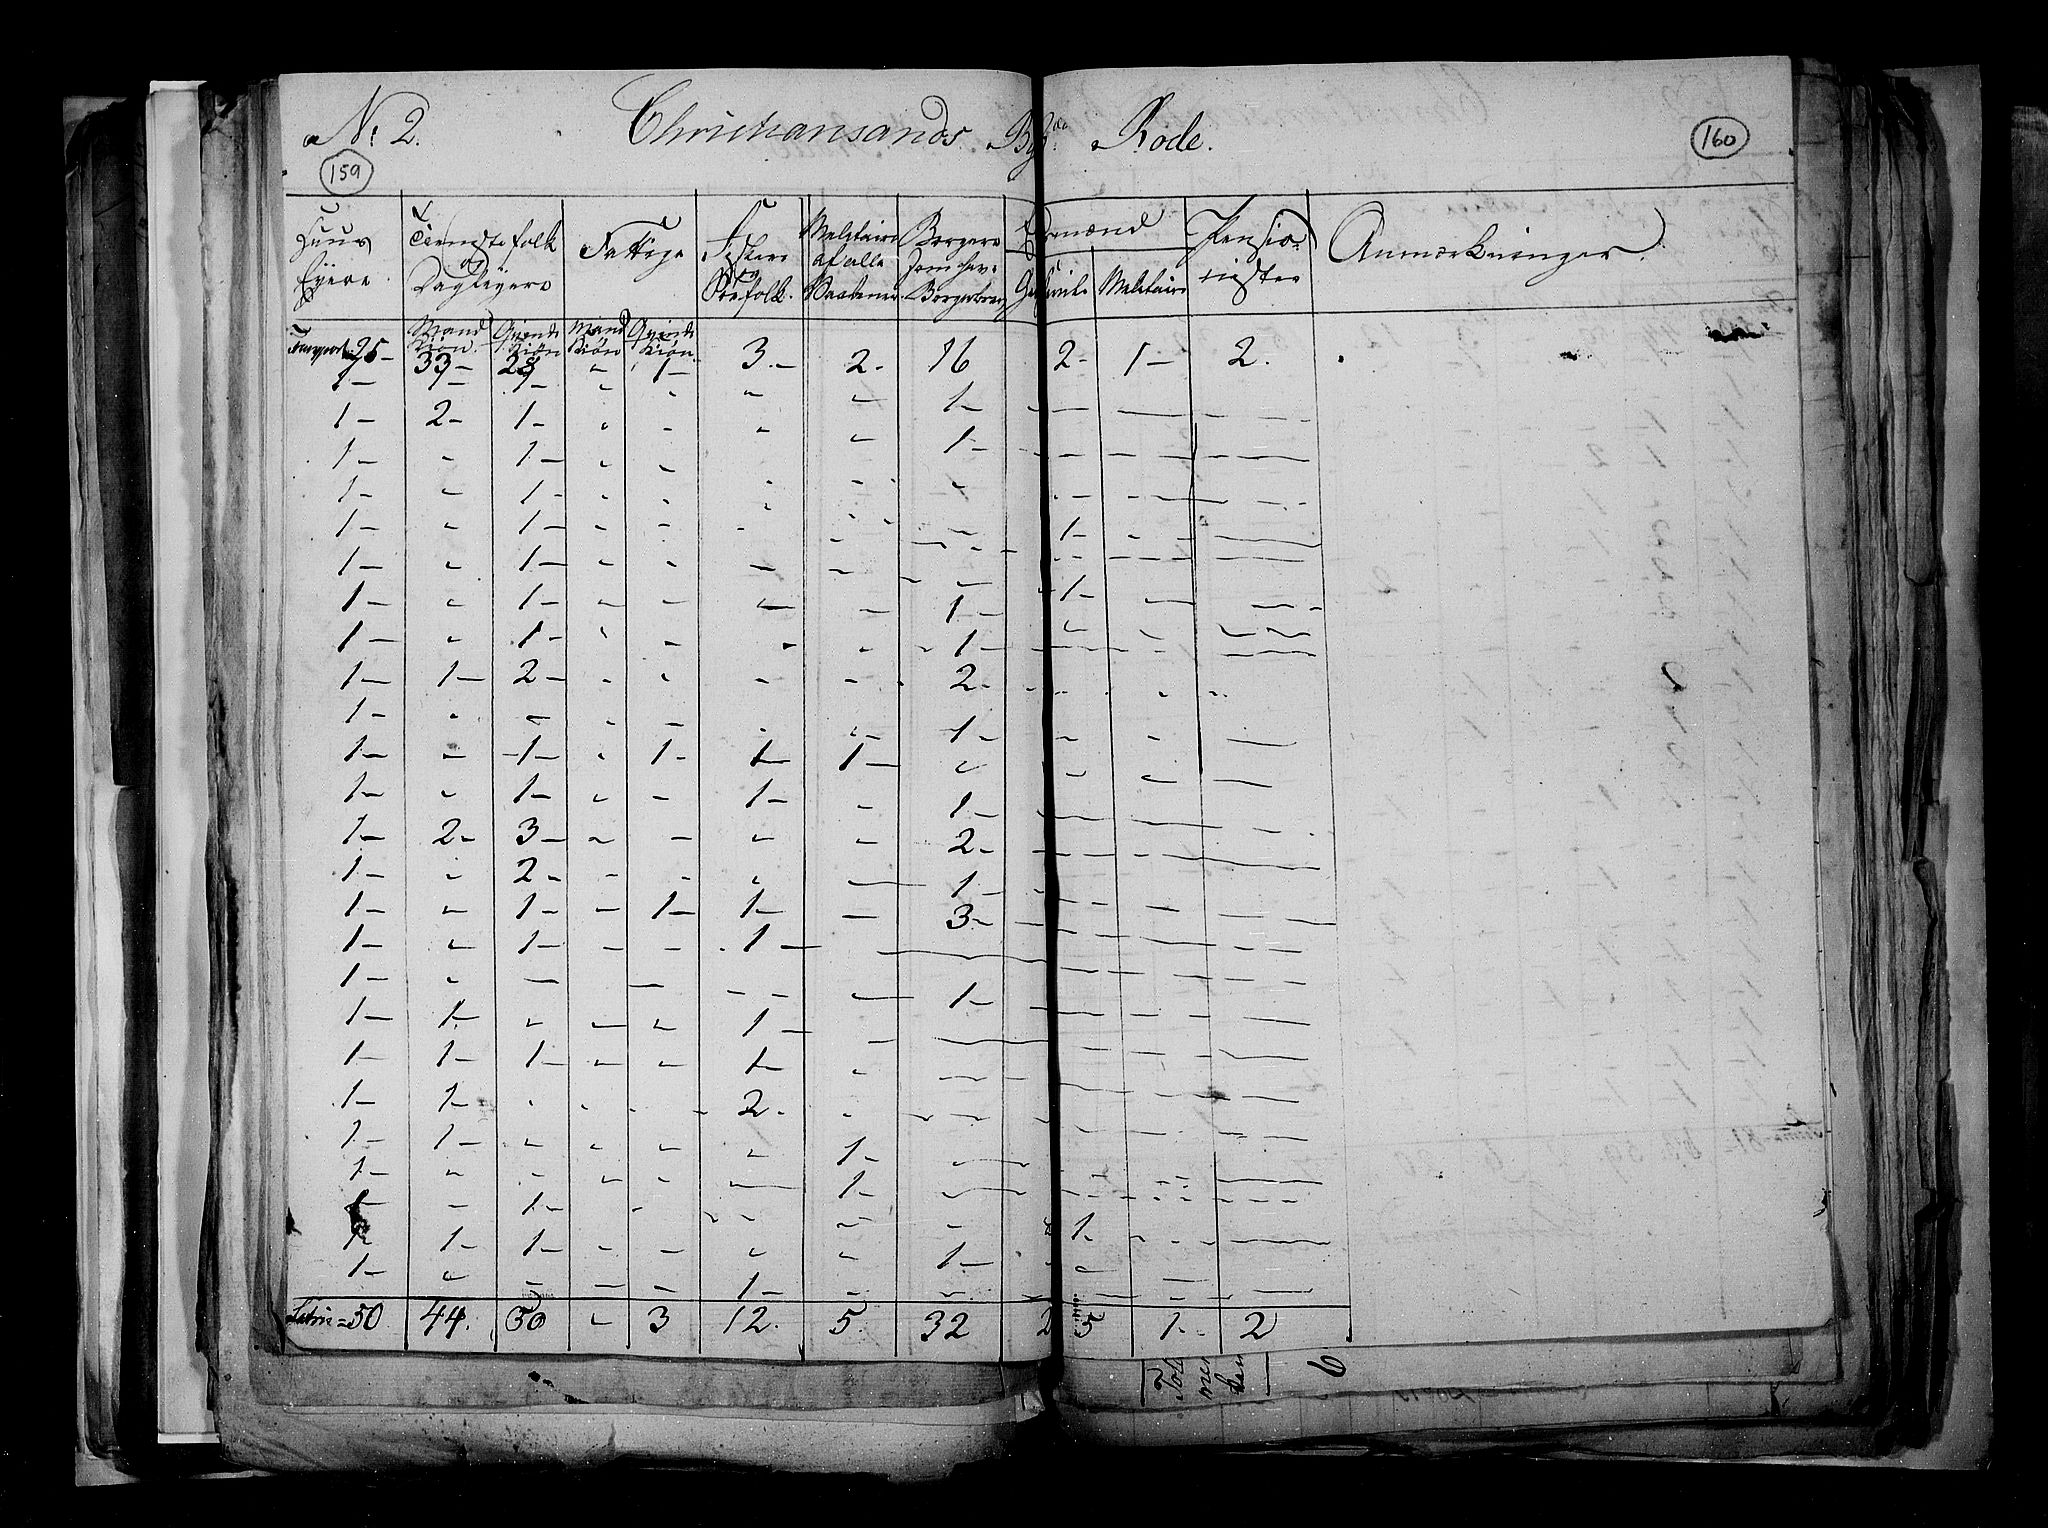 No: 2. Christiansands By Rode.
159 160
Huus Eyere. Tienestefolk og Dagleyere Fattige Fiskere og Søefolk. Militaire af alle Borgere som have Borgerbrev Militaire Pensionister Anmærkninger.
Mand Kiøn. Qvinde Kiøn Mand Kiøn Qvinde Kiøn.
Transport 25- 33- 28 " 1- 3.- 2- 16 2- 1- 2.
1- 1- 1- " " " " 1- - - -
1- 2- 1- " - " " 1- - - -
1- " 1- " " - - " - - -
1- " 1- " - - - - 1- - -
1- " 1- - - - - - - - -
1- " 1- " - - - - 1- - -
1- " 1- - - - - 1- - - -
1- " 1- " - - " 1- - - -
1- 1- 2- " " - - 2- - - -
1- " - " - - - 1- - - -
1- " 1- " 1- 1- 1- " - - -
1- " 1- " - 1- - 1- - - -
1- 2- 3- " - " - 2- - - -
1- " 2- - - " - 1- - - -
1- " 1- - 1- 1- - 3- - - -
1- " 1- - - 1- - - - - -
1- " - - - - - 1- - - -
1- 1- " - " 1- - - - - -
1- 1- 1- " " 1- " - - - -
1- 1- - - - 2- - - - - -
1- 1- " " " " 1- - - - -
1- " - " - - 1- - - - -
1- - 1- - - - - - 1- - -
1- 1- 1- - - " " 1- - - -
1- " - - - 1- - - - - -
Latus = 50 44. 50 " 3 12. 5. 32 5 1- 2